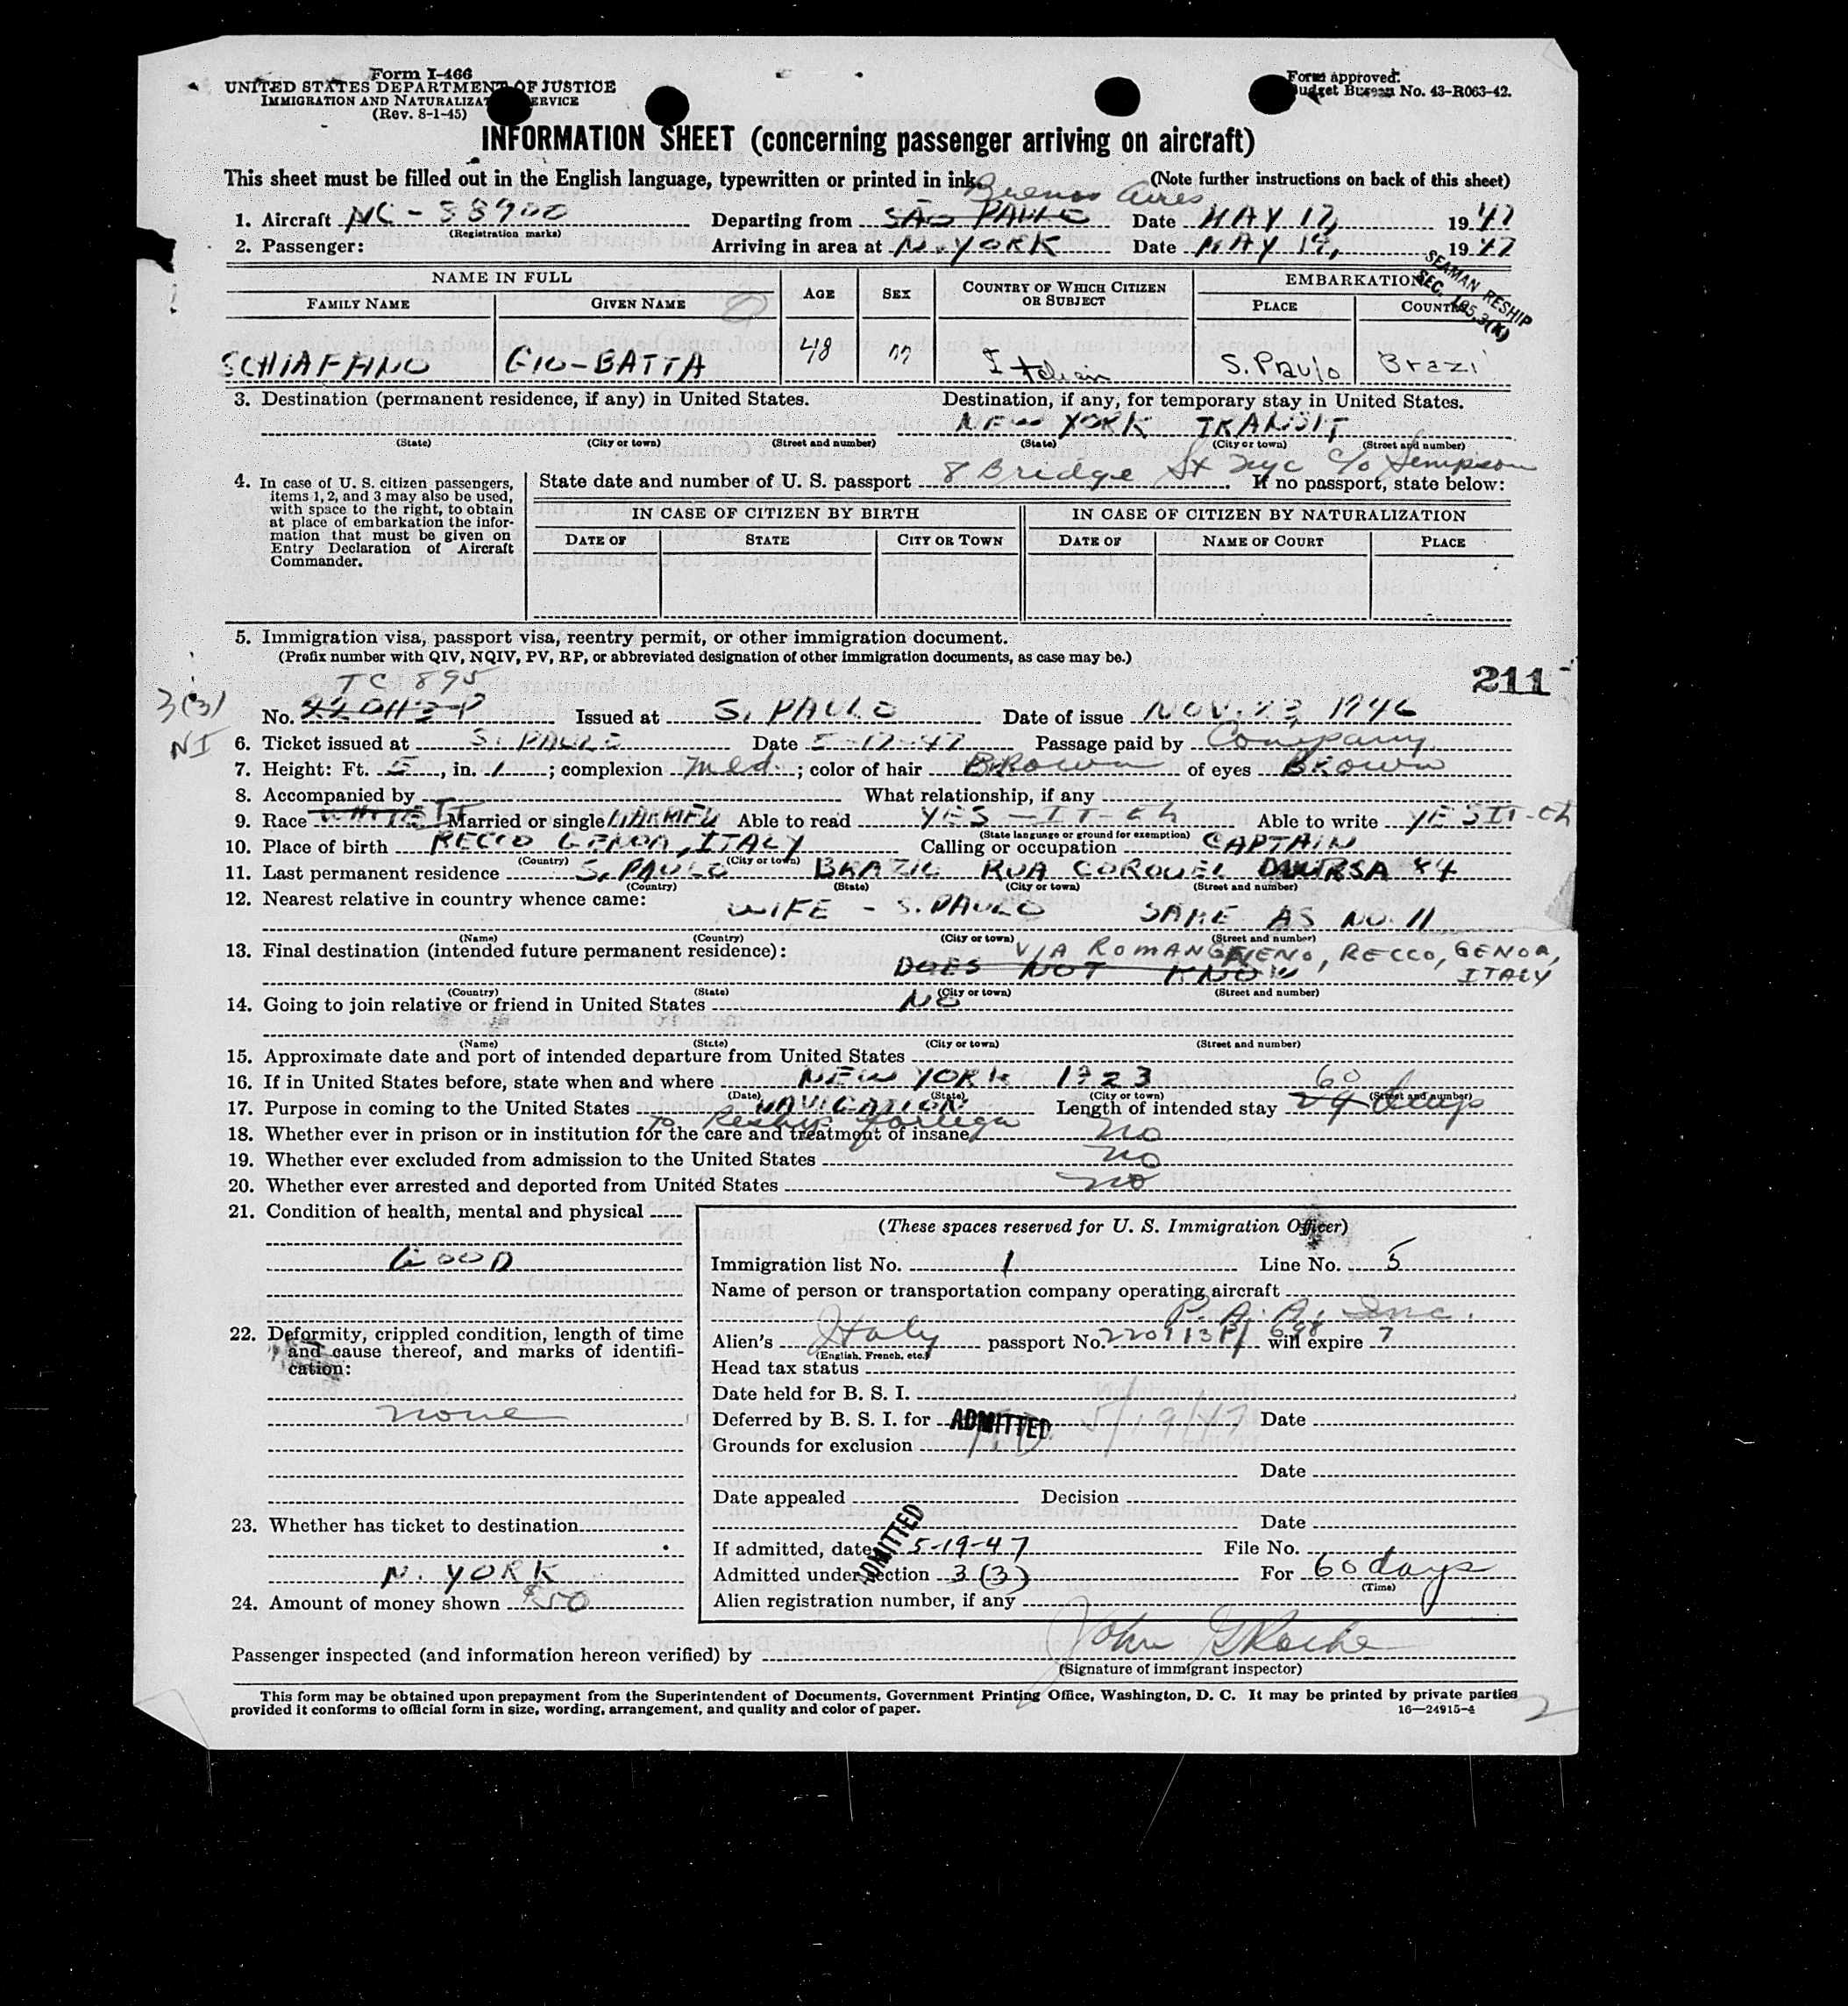 Form I-466
UNITED STATES DEPARTMENT OF JUSTICE
IMMIGRATION AND NATURALIZATION SERVICE
(Rev. 8-1-45)
Form approved.
Budget Bureau No. 43-R063-42.
INFORMATION SHEET (concerning passenger arriving on aircraft)
This sheet must be filled out in the English language, typewritten or printed in ink. (Note further instructions on back of this sheet)
Buenos Aires
1. Aircraft NC-88900 Departing from SÃO PAULO Date MAY 17, 1947
(Registration marks)
2. Passenger: Arriving in area at N. YORK Date MAY 19, 1947
SEAMAN RESHIP
SEC. 195.3(K)
NAME IN FULL AGE SEX COUNTRY OF WHICH CITIZEN OR SUBJECT EMBARKATION
FAMILY NAME GIVEN NAME PLACE COUNTRY
SCHIAFFINO GIO-BATTA 48 m Italian S. Paulo Brazil
3. Destination (permanent residence, if any) in United States. Destination, if any, for temporary stay in United States.
NEW YORK TRANSIT
(State) (City or town) (Street and number) (State) (City or town) (Street and number)
8 Bridge St nyc c/o Sempson
4. In case of U. S. citizen passengers, items 1, 2, and 3 may also be used, with space to the right, to obtain at place of embarkation the information that must be given on Entry Declaration of Aircraft Commander.
State date and number of U. S. passport If no passport, state below:
IN CASE OF CITIZEN BY BIRTH IN CASE OF CITIZEN BY NATURALIZATION
DATE OF STATE CITY OR TOWN DATE OF NAME OF COURT PLACE
5. Immigration visa, passport visa, reentry permit, or other immigration document.
(Prefix number with QIV, NQIV, PV, RP, or abbreviated designation of other immigration documents, as case may be.)
211
TC 895
3(3)
NI
No. 220113-P Issued at S. PAULO Date of issue NOV. 23, 1946
6. Ticket issued at S. PAULO Date 5-17-47 Passage paid by Company
7. Height: Ft. 5, in. 1; complexion Med.; color of hair BROWN of eyes BROWN
8. Accompanied by What relationship, if any
9. Race WHITE IT Married or single MARRIED Able to read YES - IT-Eh Able to write YES IT-Eh
(State language or ground for exemption)
10. Place of birth RECCO GENOA, ITALY Calling or occupation CAPTAIN
(Country) (City or town)
11. Last permanent residence S. PAULO BRAZIL RUA CORONEL 84
(Country) (State) (City or town) (Street and number)
12. Nearest relative in country whence came: WIFE - S. PAULO SAME AS NO. 11
(Name) (Country) (City or town) (Street and number)
13. Final destination (intended future permanent residence): VIA ROMANGNENO, RECCO, GENOA, ITALY
DOES NOT KNOW
(Country) (State) (City or town) (Street and number)
14. Going to join relative or friend in United States NO
(Name) (State) (City or town) (Street and number)
15. Approximate date and port of intended departure from United States
16. If in United States before, state when and where NEW YORK 1923
(Date) (State) (City or town) (Street and number)
17. Purpose in coming to the United States NAVIGATION Length of intended stay 29 60 days
To Reship foreign
18. Whether ever in prison or in institution for the care and treatment of insane no
19. Whether ever excluded from admission to the United States no
20. Whether ever arrested and deported from United States no
21. Condition of health, mental and physical
GOOD
22. Deformity, crippled condition, length of time and cause thereof, and marks of identification:
none
23. Whether has ticket to destination
N. YORK
24. Amount of money shown $50
(These spaces reserved for U. S. Immigration Officer)
Immigration list No. 1 Line No. 5
Name of person or transportation company operating aircraft
P. A. A. Inc.
Alien's Italy passport No. 220113P/698 will expire 7
(English, French, etc.)
Head tax status
Date held for B. S. I.
Deferred by B. S. I. for ADMITTED 5/19/47 Date
Grounds for exclusion
Date
Date appealed Decision
Date
ADMITTED
If admitted, date 5-19-47 File No.
Admitted under section 3(3) For 60 days
(Time)
Alien registration number, if any
Passenger inspected (and information hereon verified) by John G Roche
(Signature of immigrant inspector)
This form may be obtained upon prepayment from the Superintendent of Documents, Government Printing Office, Washington, D. C. It may be printed by private parties
provided it conforms to official form in size, wording, arrangement, and quality and color of paper. 16—24915-4
2